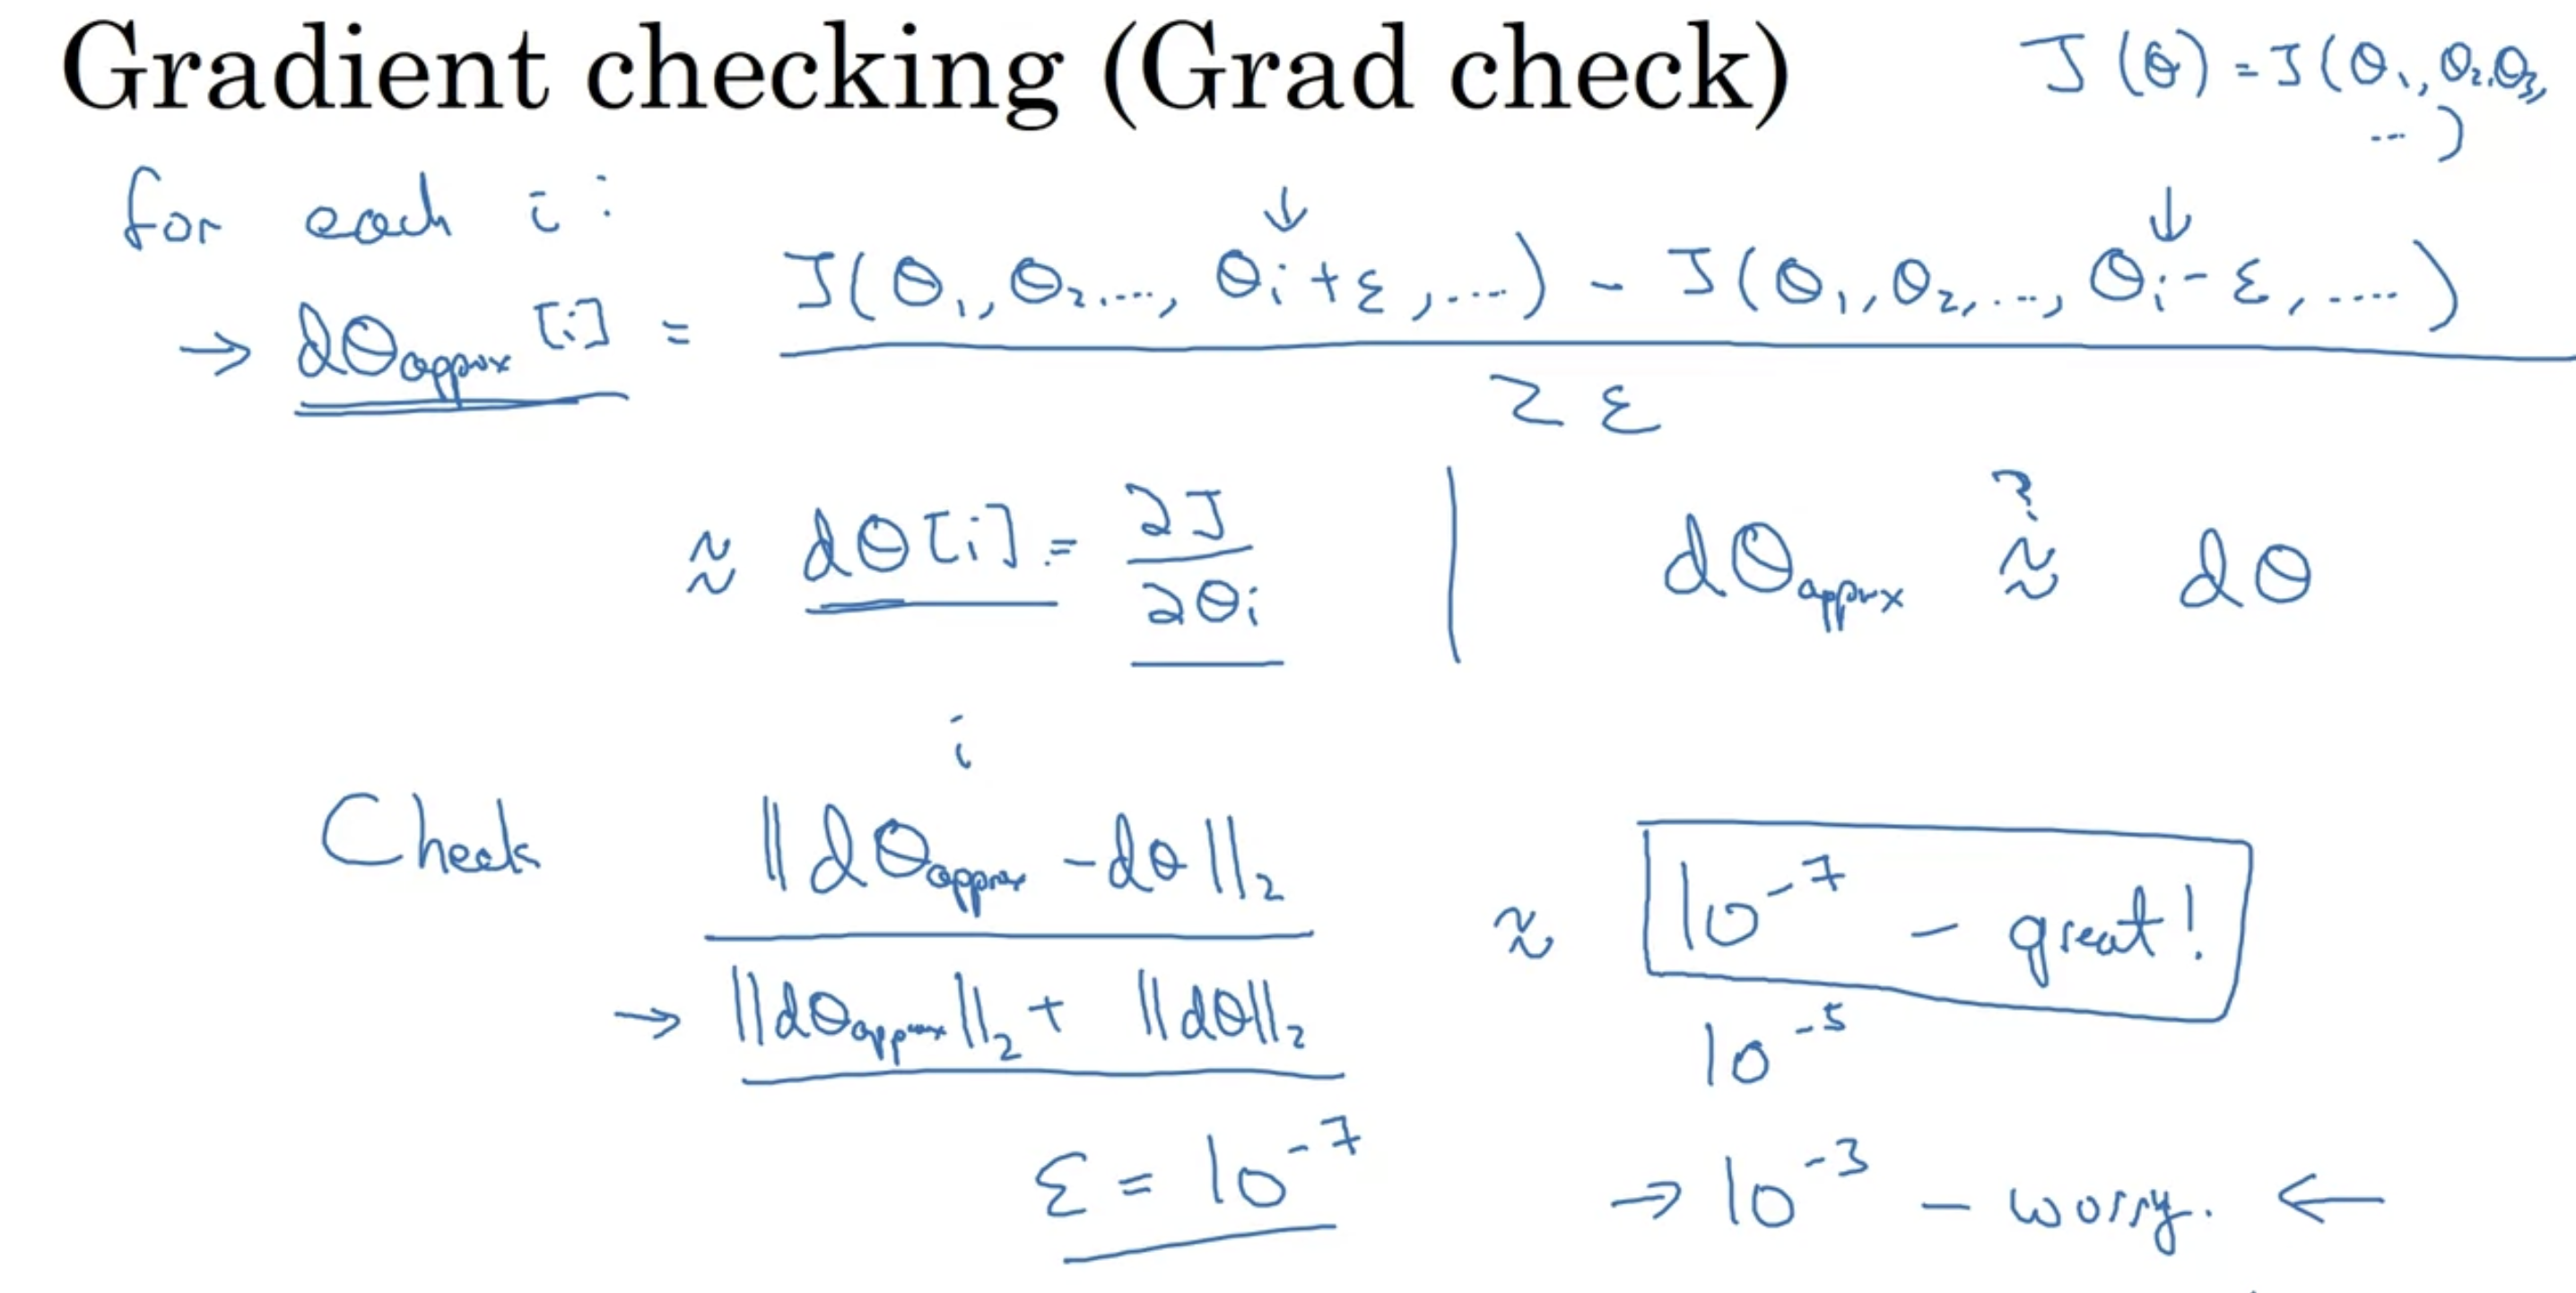 Gradient checking (Grad check)
J(θ) = J(θ₁, θ₂, θ₃, ...)
for each i :
↓ ↓
→ dθapprox [i] = J(θ₁, θ₂, ..., θᵢ + ε, ...) - J(θ₁, θ₂, ..., θᵢ - ε, ...)
2 ε
≈ dθ[i] = ∂J / ∂θᵢ | dθapprox ≈? dθ
i
Check ‖dθapprox - dθ‖₂
→ ‖dθapprox‖₂ + ‖dθ‖₂
≈ 10⁻⁷ - great!
10⁻⁵
ε = 10⁻⁷
→ 10⁻³ - worry. ←